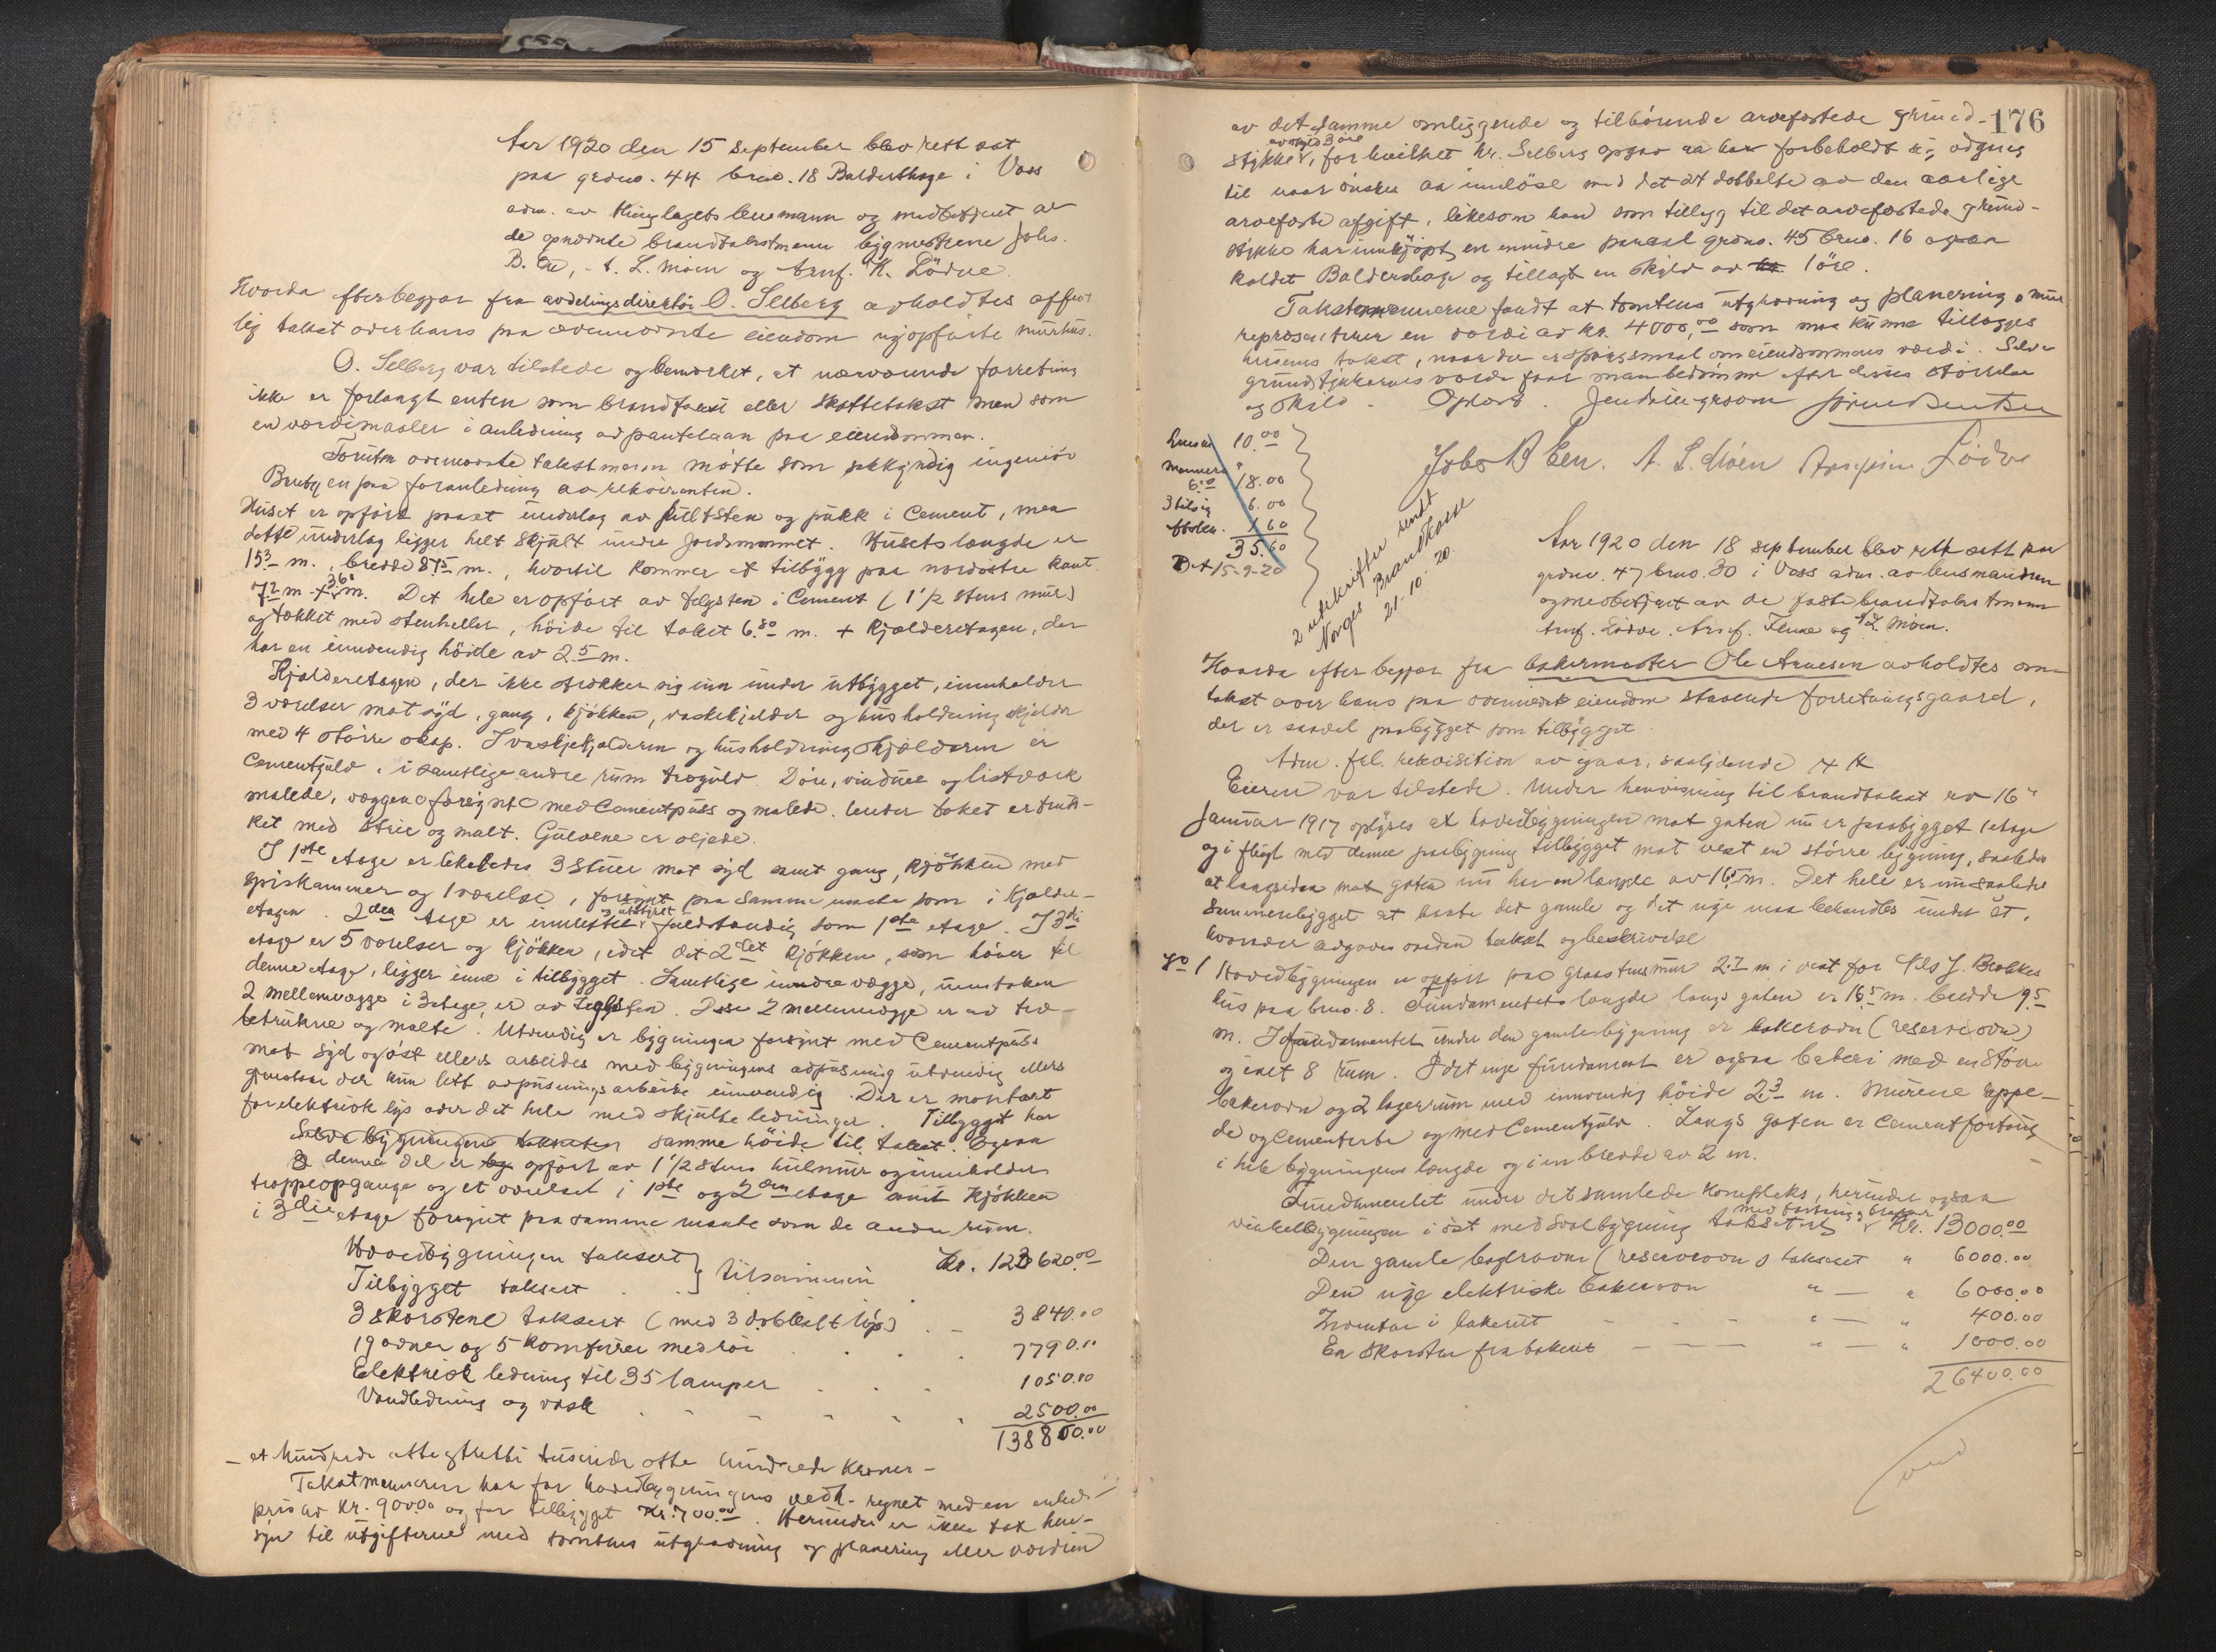 Aar 1920 den 15 september blev rett sat
paa grdno. 44 brno. 18 Baldershage i Voss
adm. av tinglagets lensmann og medbetjent av
de opnævnte brandtakstmenn bygmestrene Johs.
B. Een, A. L. Moen og Arnf. K. Lödve.
Hvorda efter begjær fra avdelingsdirektör O. Selberg avholdtes offent
lig takst over hans paa ovennævnte eiendom nyopførte murhus.
O. Selberg var tilstede og bemerket, at nærværende forretning
ikke er forlangt enten som brandtakst eller skattetakst men som
en værdimaaler i anledning av pantelaan paa eiendommen.
Foruten ovennævnte takstmenn møtte som sakkyndig ingeniør
paa foranledning av rekvirenten.
Huset er opført paa et underlag av kultsten og pukk i Cement, men
dette underlag ligger helt skjult under jordsmonnet. Husets længde er
15.3 m., bredde 8.75 m., hvortil kommer et tilbygg paa nordøstre kant
7.2 m x 3.61 m. Det hele er opført av teglsten i Cement (1 1/2 stens mur)
og tækket med stenheller, høide til taket 6.80 m. + kjælderetagen, der
har en innvendig høide av 2.5 m.
Kjælderetagen, der ikke strækker sig inn under utbygget, inneholder
3 værelser mot syd, gang, kjøkken, vaskekjelder og husholdningskjelder
med 4 større skap. I vaskekjælderen og husholdningskjælderen er
Cementgulv, i samtlige andre rum trægulv. Döre, vinduer og listverk
malede, væggene forsynt med Cementpuss og malede. Under taket er truk-
ket med strie og malt. Gulvene er oljede.
I 1ste etage er likeledes 3 stuer mot syd samt gang, kjøkken med
spiskammer og 1 værelse, forsynt paa samme maate som i kjælder-
etagen. 2den etage er innrettet og utstyret fuldstændig som 1ste etage. I 3dje
etage er 5 værelser og kjøkken, idet det 2det kjøkken, som hører til
denne etage, ligger inne i tilbygget. Samtlige inndre vægge, unntaken
2 mellemvægge i 3 etage, er av teglsten. Disse 2 mellemvægge er av træ-
betrukne og malte. Utvendig er bygningen forsynt med Cementpuss
mot syd og øst ellers arbeides med bygningens avpusning utvendig ellers
gjenstaar der kun lett avpusningsarbeide innvendig. Der er montert
for elektrisk lys over det hele med skjulte ledninger. Tilbygget har
Selve bygningene taksten samme høide til taket. Ogsaa
denne del er opført av 1 1/2 stens hulmur og inneholder
trappeopgange og et værelset i 1ste og 2den etage samt kjøkken
i 3die etage forsynt paa samme maate som de andre rum.
Hovedbygningen taksert } tilsammen Kr. 123620.00
Tilbygget taksert
3 skorstene taksert (med 3 dobbelt løp) 3840.00
19 ovner og 5 komfurer med rør 7790.00
Elektrisk ledning til 35 lamper 1050.00
Vandledning og vask 2500.00
138800.00
– et hundrede otte og tretti tusinde otte hundrede kroner –
Takstmennene har for hovedbygningens vedk. regnet med en enheds-
pris av kr. 900.00 og for tilbygget Kr. 700.00. Herunder er ikke tat hen-
syn til utgifterne med tomtens utgravning og planering eller værdien
176
av det samme omliggende og tilhørende arvefæstede grund-
avskyld 3 øre
stykke, for hvilket hr. Selberg opgav aa har forbeholdt sig adgang
til naar ønskes aa innløse med det 24 dobbelte av den aarlige
arvefæste afgift, likesom han som tillegg til det arvefæstede grund-
stykke har innkjøpt en mindre parcel grdno. 45 brno. 16 ogsaa
kaldet Baldershage og tillagt en skyld av 1 øre.
Takstmennerne fandt at tomtens utgravning og planering og mur
repræsenterer en værdi av kr. 4000,00 som maa kunne tillægges
husenes takst, naar der er spørsmaal om eiendommens værdi. Selve
grundstykkernes værde faar man bedømme efter disses størrelse
og skyld. Oplæst. Jendringroom
Lensm 10.00
Mennene
6.00 18.00
3 tilsig 6.00
1.60
35.60
Bet 15-9-20
2 utskrifter sendt
Norges Brandkasse
21-10-20.
Johs B Een. A. L. Moen Arnfinn Lödve
Aar 1920 den 18 september blev rett satt paa
grdno. 47 brno. 30 i Voss adm. av lensmannen
og medbetjent av de faste brandtakstmenn
Arnf. Lödve. Arnf. Flene og A L. Moen.
Hvorda efter begjær fra bakermester Ole Arnesen avholdtes om-
takst over hans paa ovennævnte eiendom staaende forretningsgaard,
der er saavel paabygget som tilbygget
Adm. frl. rekvisition av igaar, saalydende
Eieren var tilstede. Under henvisning til brandtakst av 16de
Januar 1917 oplyses at hovedbygningen mot gaten nu er paabygget 1 etage
og i flugt med denne paabygning tilbygget mot vest en større bygning, saaledes
at langsiden mot gaten nu har en længde av 16.5 m. Det hele er nu saaledes
sammenbygget at baade det gamle og det nye maa behandles under et,
hvorover avgaves saadan takst og beskrivelse
No 1 Hovedbygningen er opført paa graastensmur 2.7 m i vest for Nils J. Brekkes
hus paa brno. 8. Fundamentets længde langs gaten er 16.5 m. bredde 9.5
m. I fundamentet under den gamle bygning er bakerovn (reserveovn)
og ialt 8 rum. I det nye fundament er ogsaa bakeri med en større
bakerovn og 2 lagerrum med innvendig höide 2.3 m. Murene rappe-
de og cementerte og med Cementgulv. Langs gaten er Cementfortaug
i hele bygningens længde og i en bredde av 2 m.
Fundamentet under det samlede kompleks, herunder ogsaa
med fortaug
vinkelbygningen i øst med svalbygning taksert Kr. 13000.00
Den gamle bagerovn (reserveovn) taksert " 6000.00
Den nye elektriske bakerovn " — " 6000.00
Inventar i bakeriet " — " 400.00
En skorsten fra bakeriet " — " 1000.00
26400.00